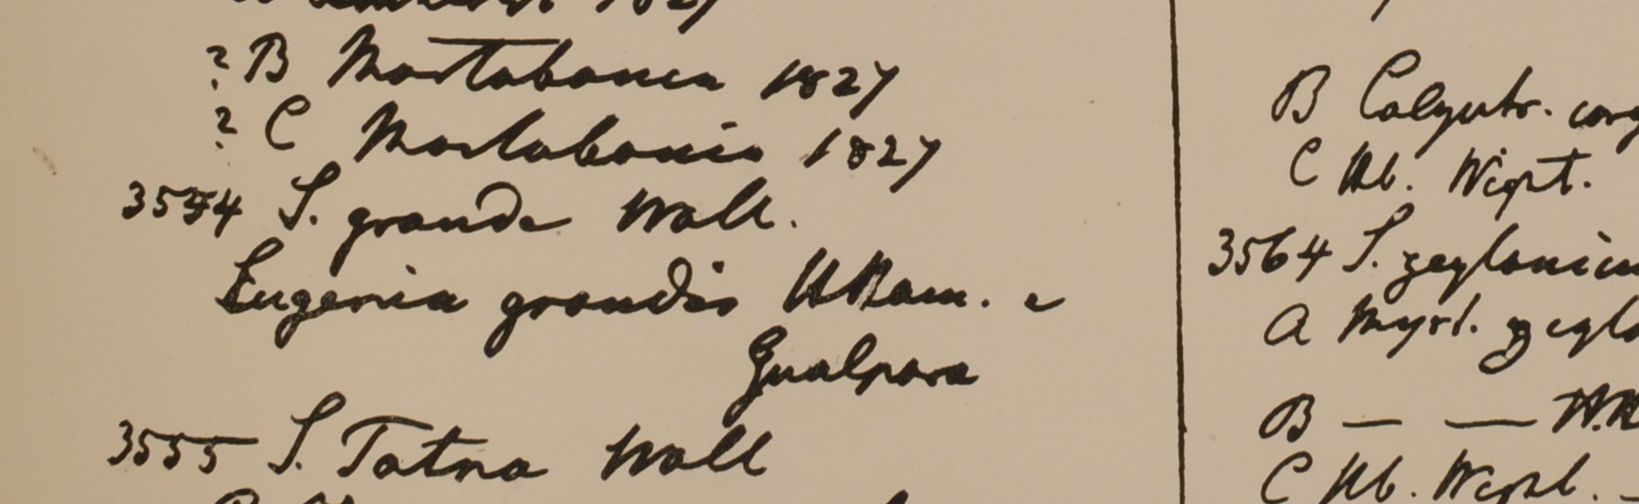 1827
? B Martabania 1827
? C Martabania 1827
3554 S. grande Wall.
Eugenia grandis HHam. e
Gualpara
3555 S. Tatna Wall
B Calyptr.
C Hb. Wight.
3564 S. zeylanicu
A Myrt. zeyla
B — — H.
C Hb. Wight. —